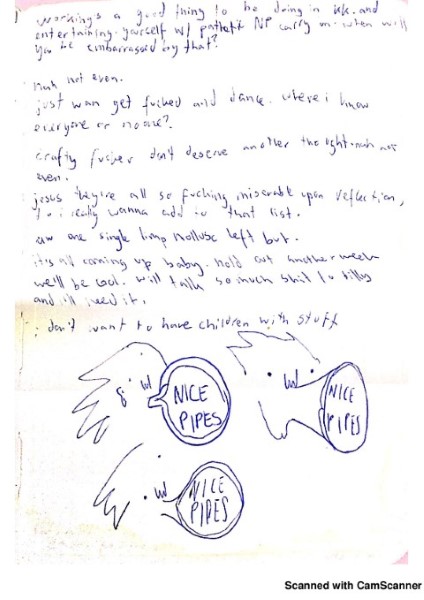 working's a good thing to be doing in life. and
entertaining yourself w/ pathetic NP carry on. when will
you be embarrassed by that?
nah not even.
just wan get fucked and dance. where i know
everyone or no one?
crafty fucker don't deserve another thought. nah not
even.
jesus they're all so fucking miserable upon reflection,
do i really wanna add to that list.
one single limp mollusc left but.
it's all coming up baby. hold out another week
we'll be cool. will talk so much shit to billy
and i'll need it.
i don't want to have children with stuff
NICE
PIPES
NICE
PIPES
NICE
PIPES
Scanned with CamScanner